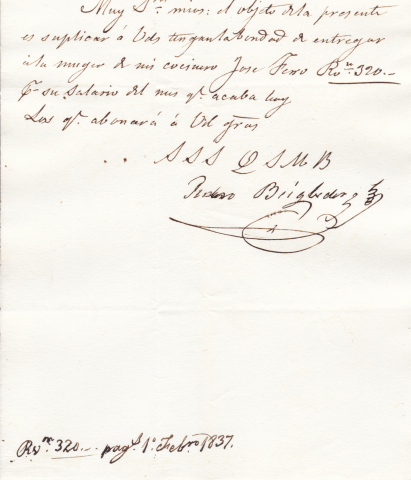 Muy Sres mios: el objeto dela presente
es suplicar á Vds tengan la bondad de entregar
á la muger de mi cocinero Jose Ferro Rvn 320.-
Pr su salario del mes qe acaba hoy
Los qe abonará á Vd gras
S S S Q S M B
Pedro
Rvn 320.- pags 1o Febro 1837.